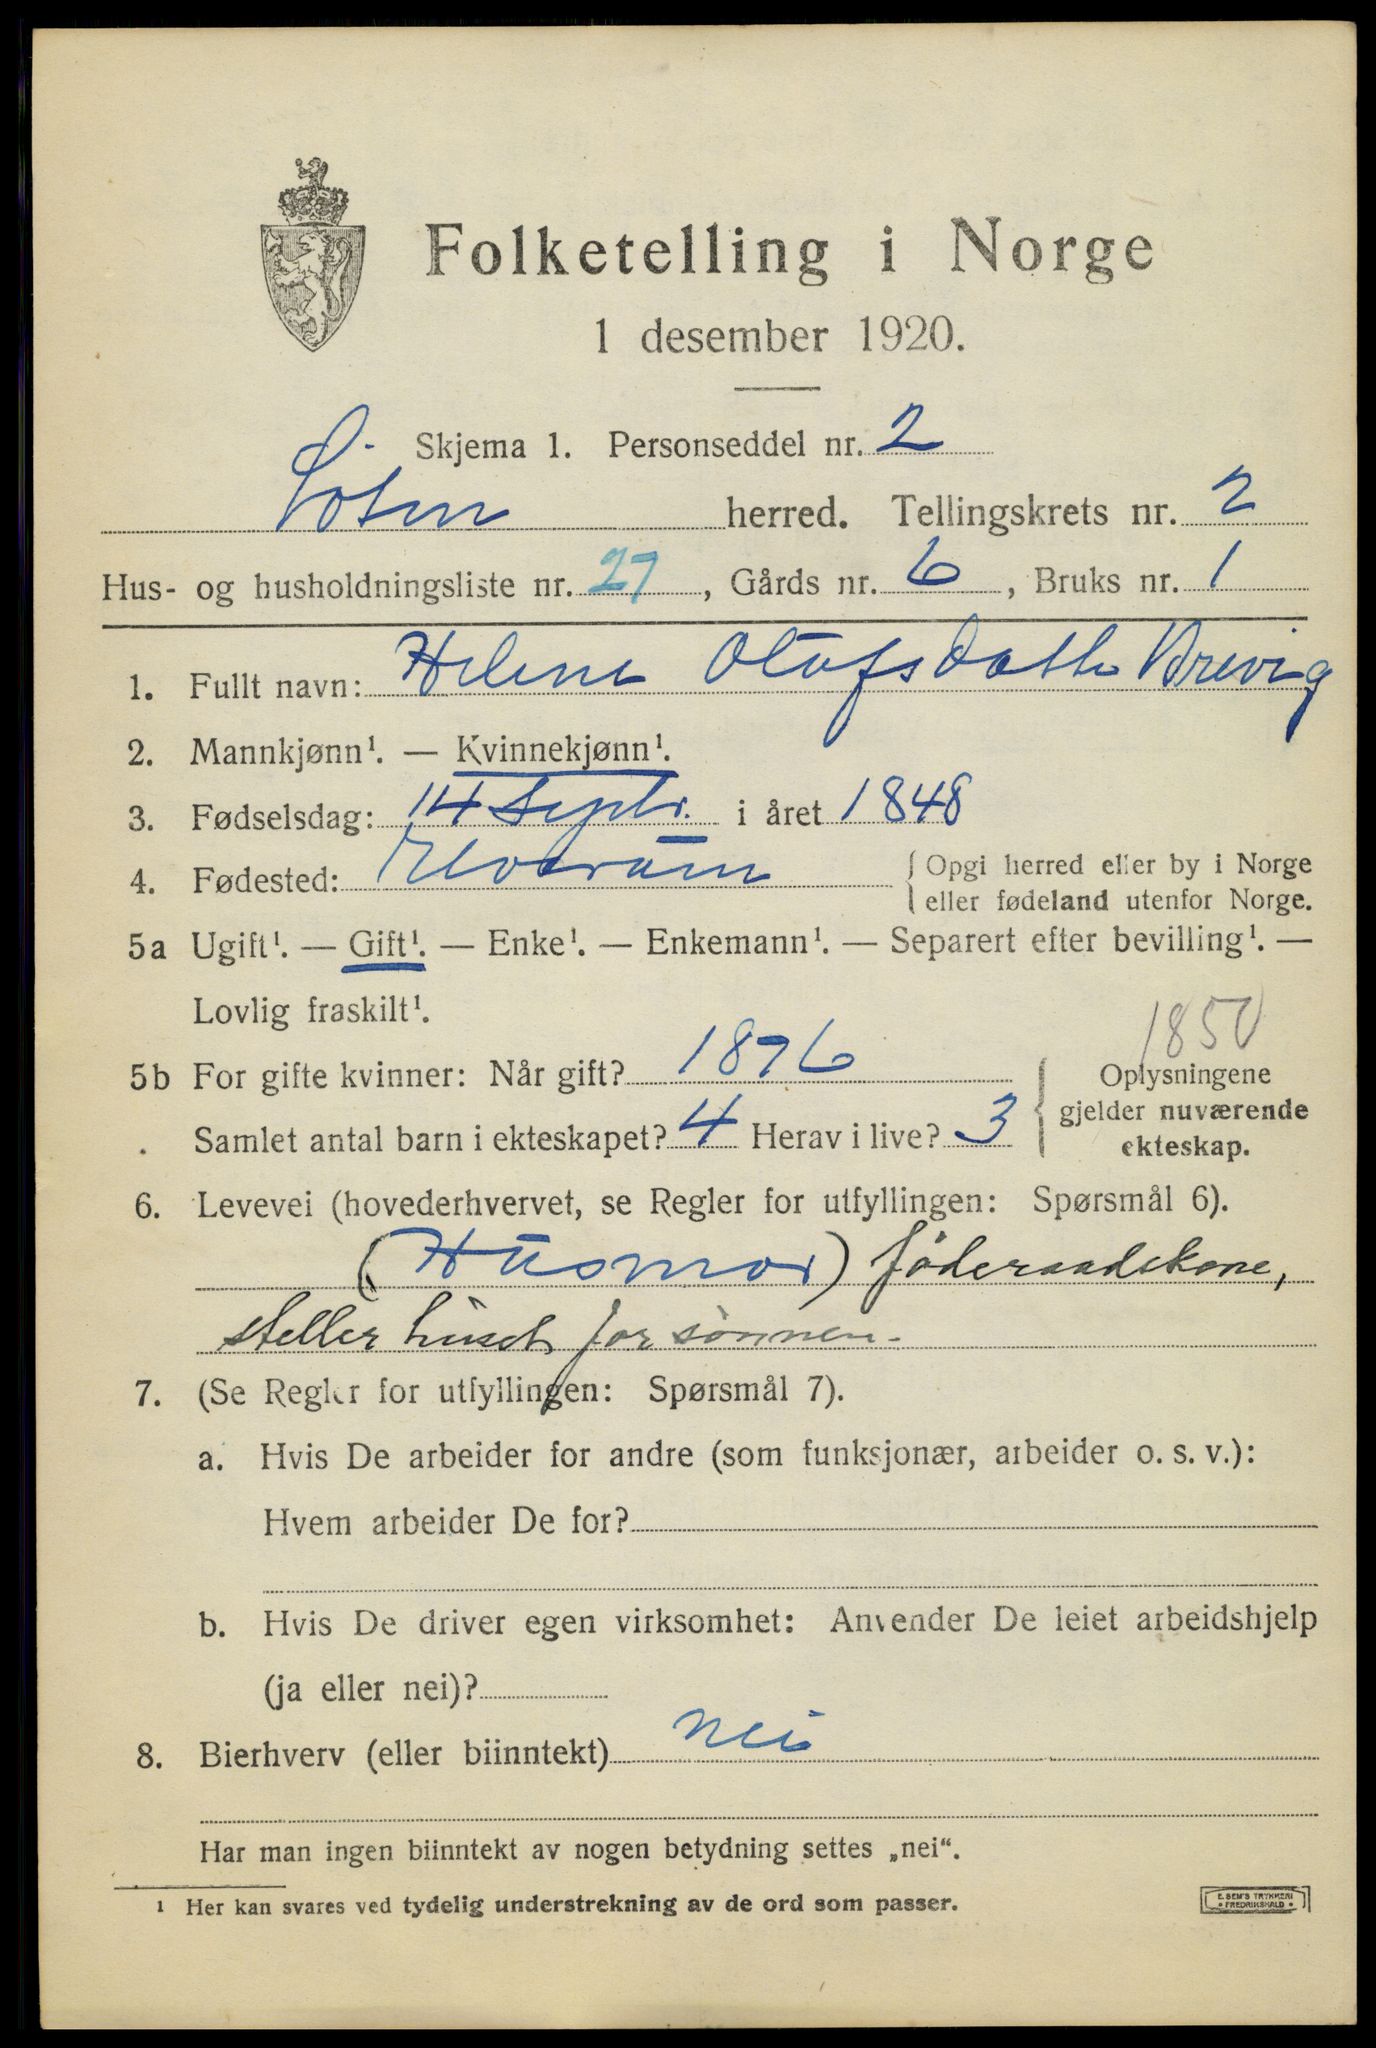 Folketelling i Norge
1 desember 1920.
Skjema 1. Personseddel nr. 2
Løten herred. Tellingskrets nr. 2
Hus- og husholdningsliste nr. 27, Gårds nr. 6, Bruks nr. 1
1. Fullt navn: Helene Olufsdatter Brevig
2. Mannkjønn¹. — Kvinnekjønn¹.
3. Fødselsdag: 14 Septr. i året 1848
4. Fødested: Elverum { Opgi herred eller by i Norge
eller fødeland utenfor Norge.
5a Ugift¹. — Gift¹. — Enke¹. — Enkemann¹. — Separert efter bevilling¹. —
Lovlig fraskilt¹.
1850
5b For gifte kvinner: Når gift? 1876 { Oplysningene
gjelder nuværende
Samlet antal barn i ekteskapet? 4 Herav i live? 3 ekteskap.
6. Levevei (hovederhvervet, se Regler for utfyllingen: Spørsmål 6).
(Husmor) føderaadskone,
steller huset for sønnen.
7. (Se Regler for utfyllingen: Spørsmål 7).
a. Hvis De arbeider for andre (som funksjonær, arbeider o. s. v.):
Hvem arbeider De for?
b. Hvis De driver egen virksomhet: Anvender De leiet arbeidshjelp
(ja eller nei)?
8. Bierhverv (eller biinntekt) nei
Har man ingen biinntekt av nogen betydning settes „nei“.
¹ Her kan svares ved tydelig understrekning av de ord som passer.
E. SEM'S TRYKKERI
• FREDRIKSHALD •